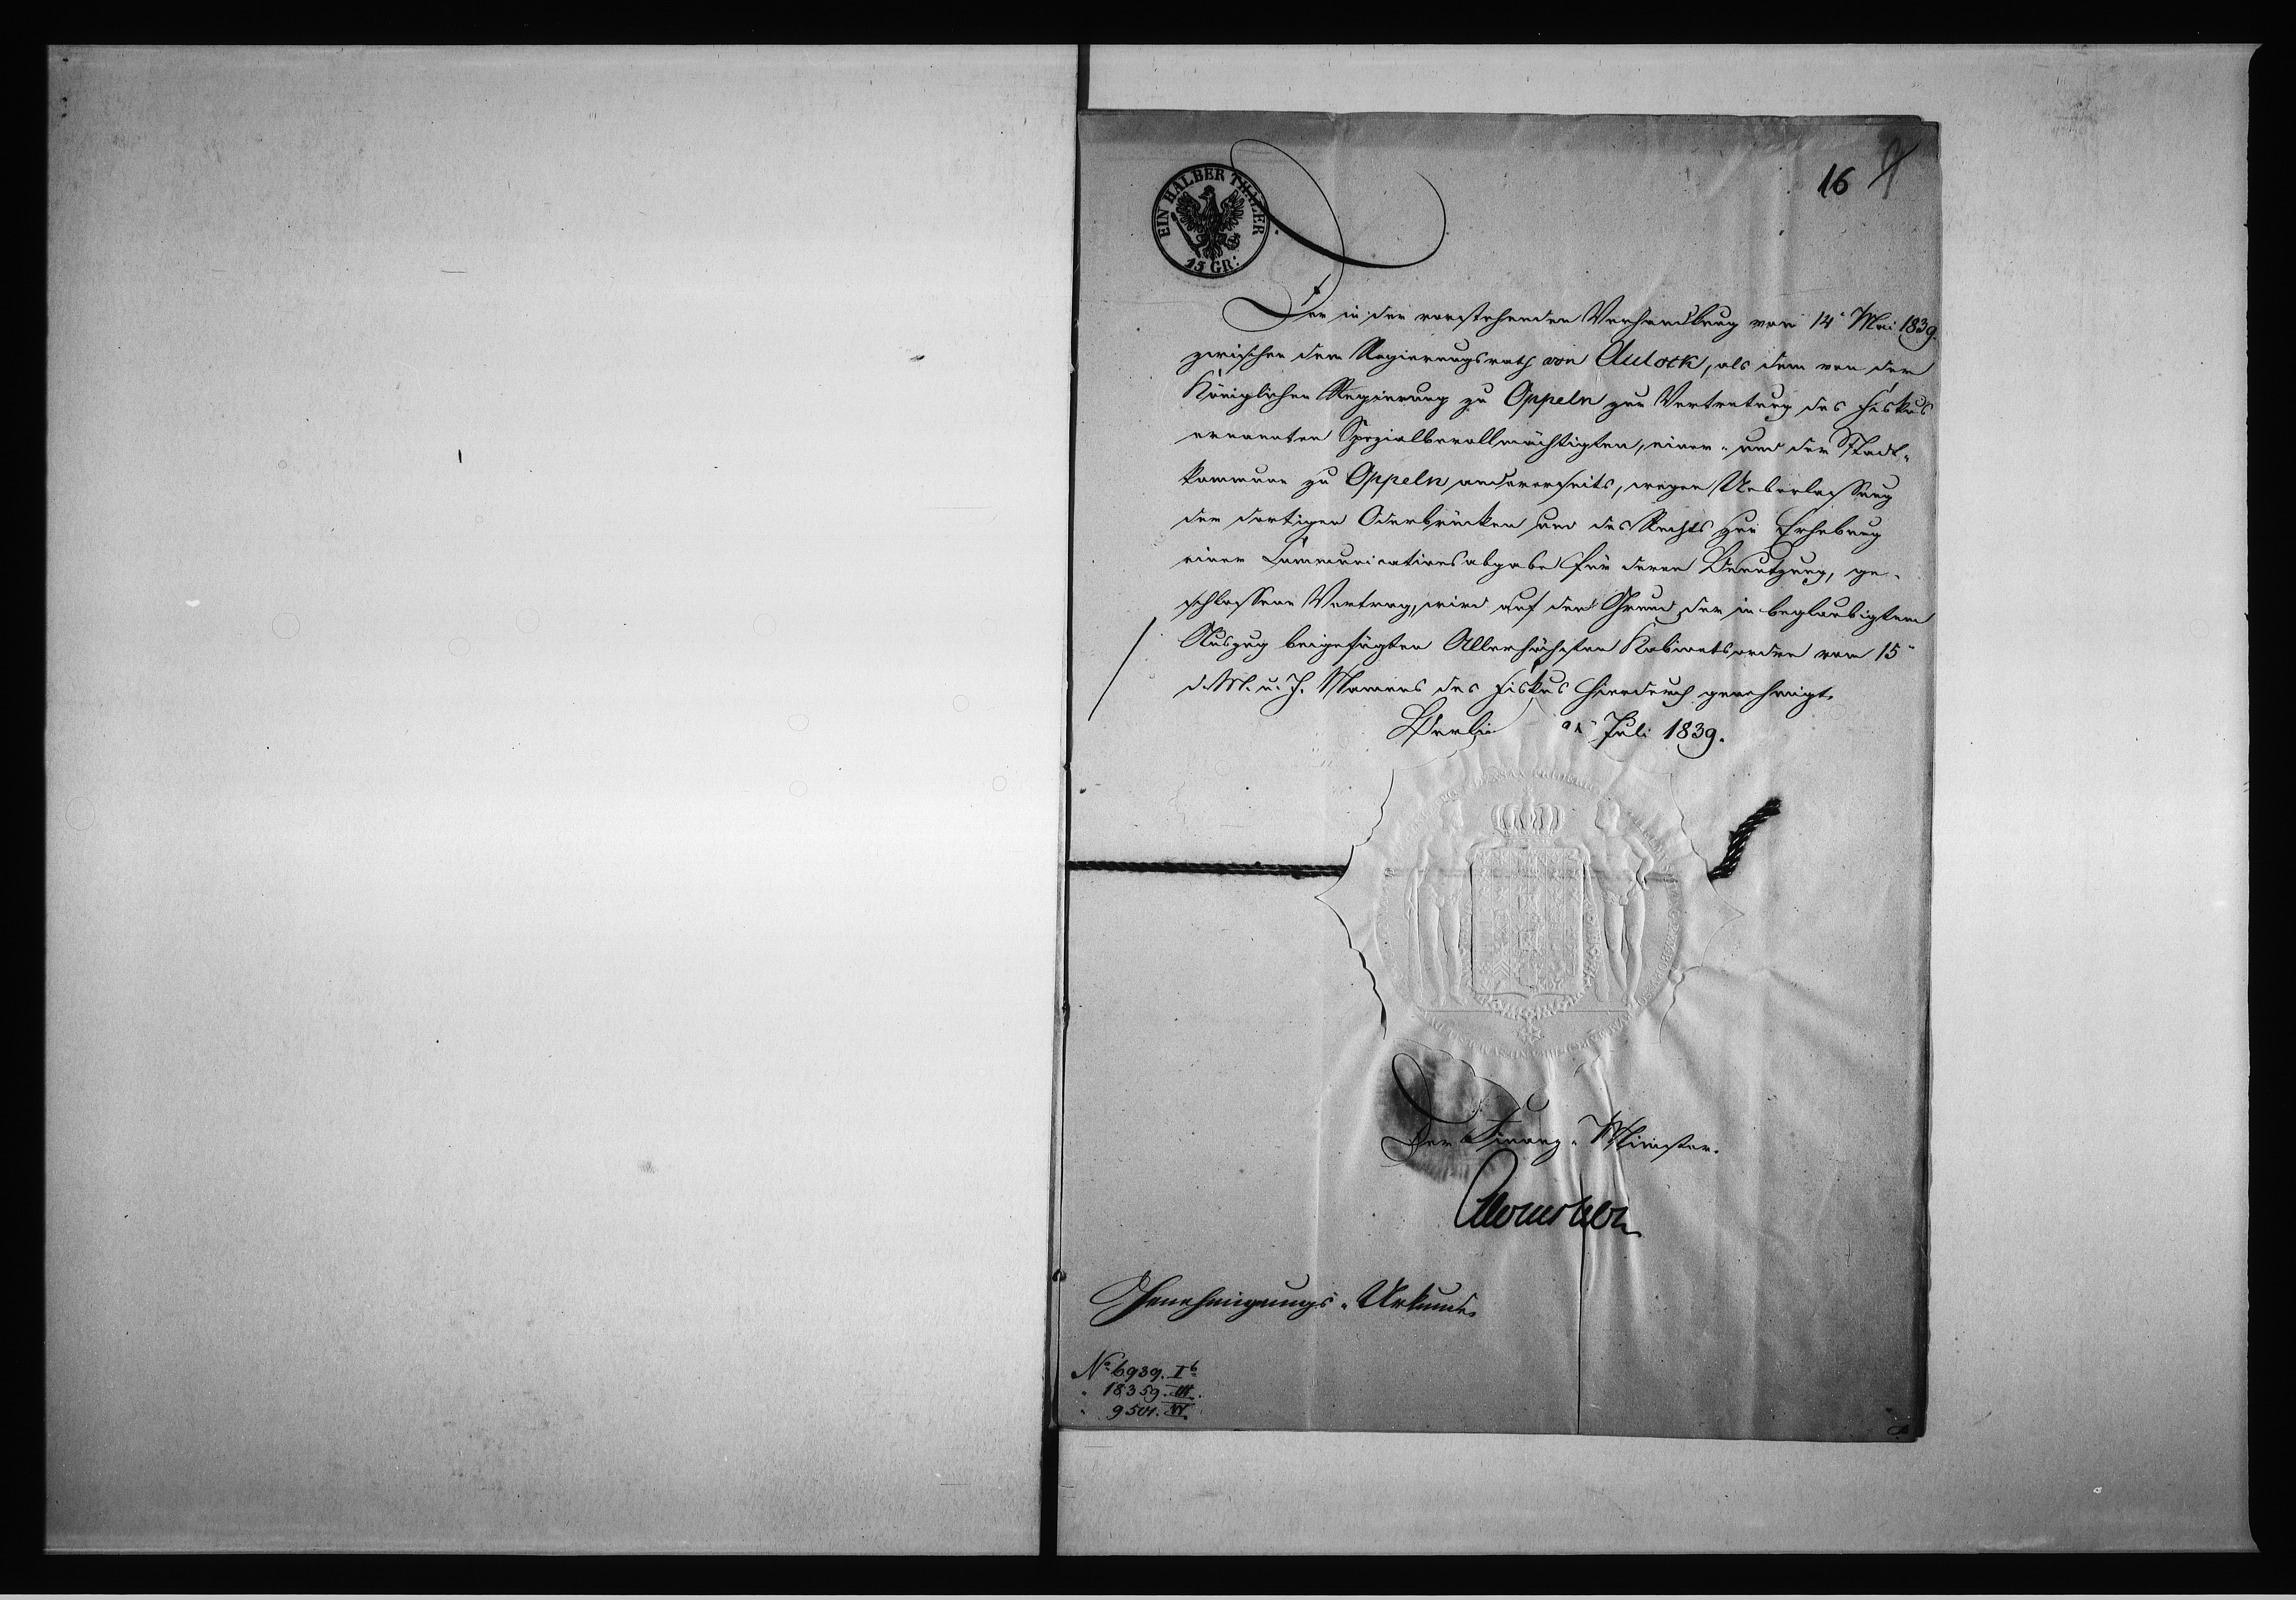 16
EIN HALBER THALER
15 GR:
Der in der vorstehenden Verhandlung vom 14ᵗ Mai 1839
zwischen dem Regierungsrath von Aulock, als dem von der
Königlichen Regierung zu Oppeln zur Vertretung des Fiskus
ernannten Spezialbevollmächtigten, einer- und der Stadt-
kommune zu Oppeln andererseits, wegen Ueberlassung
der dortigen Oderbrücken und des Rechts zur Erhebung
einer Communicationsabgabe für deren Benutzung, ge-
schlossene Vertrag, wird auf den Grund der in beglaubigtem
Auszug beigefügten Allerhöchsten Kabinetsordre vom 15ᵗ
d. M. u. J. Namens des Fiskus hierdurch genehmigt.
Berlin Juli 1839.
Der Finanz-Minister.
Genehmigungs-Urkunde.
No 6939. Iᵇ
" 18359. III.
" 9501.